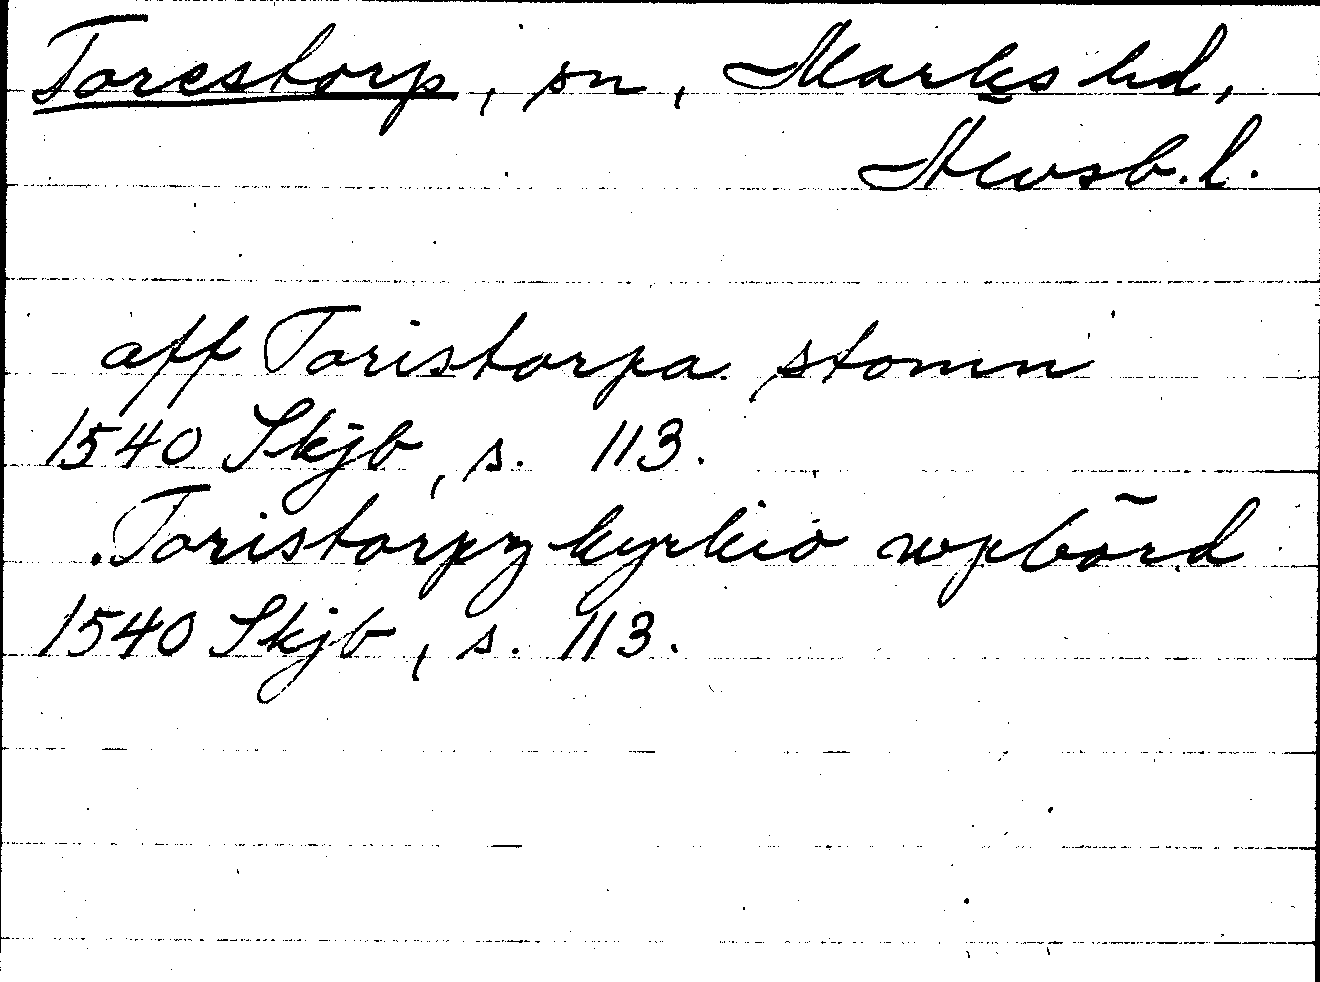 Torestorp, sn, Marks hd,
Älvsb. l.
aff Toristorpa stomn
1540 Skjb, s. 113.
Toristorpz kyrkio wpbörd
1540 Skjb, s. 113.